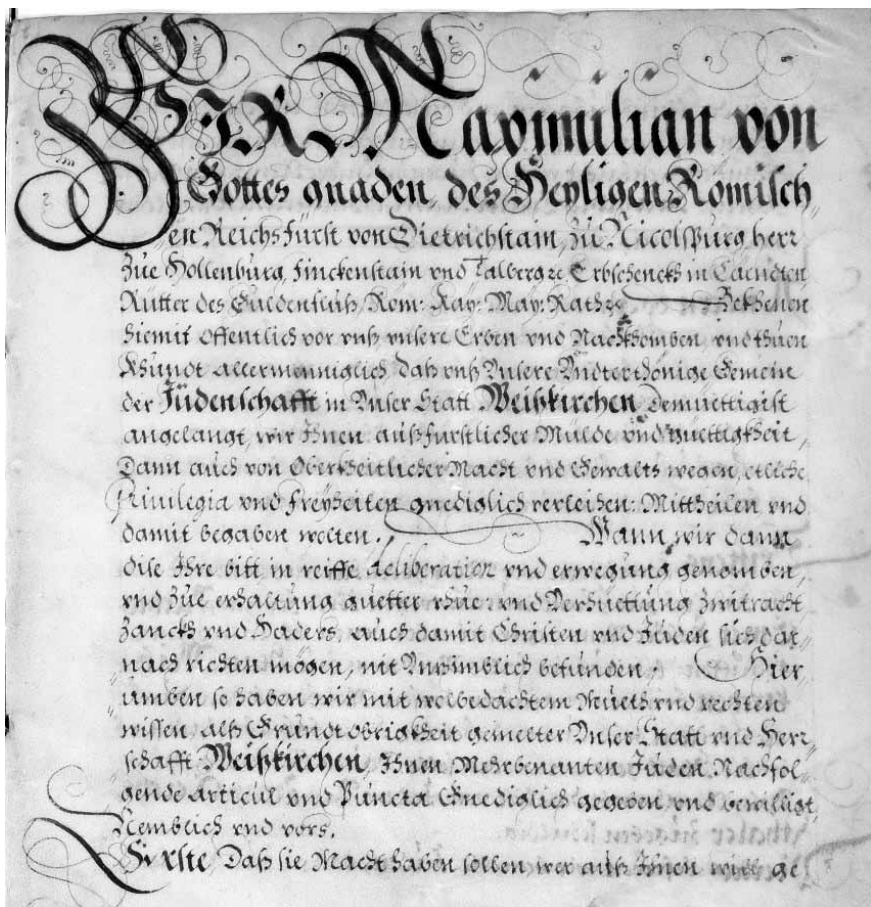 WIR Maximilian von
Gottes gnaden, des Heyligen Römisch
en Reichs Fürst von Dietrichstain, zu Nicolspurg, herr
Zue Hollenburg, Finckenstain vnd Talberg &c Erbschenckh in Carndten
Rütter des Guldenfluß, Röm: Kay: May: Rath &c Bekhenen
hiemit offentlich vor vnß vnsere Erben vnd Nachkhomben vnd thuen
Khundt allermenniglich daß vnß Vnsere Vndterthönige Gemein
der Jüdenschafft in Vnser Statt Weißkirchen, Demüettigist
angelangt, wir Ihnen auß fürstlicher Mülde vnd guettigkheit,
Dann auch von Oberkheitlicher Macht vnd Gewalts wegen, etliche
Privilegia vnd Freyheiten gnediglich verleihen: Mittheilen vnd
damit begaben wolten. Wann wir dann
dise Ihre bitt in reiffe deliberation vnd erwegung genomben,
vnd Züe erhaltung guetter rhue: vnd Verhuettung Zwitracht
Zanckh vnd Haders, auch damit Christen vnd Jüden sich dar
nach richten mögen, nit Vnzimblich befunden, Hier
umben so haben wir mit wolbedachtem Mueth vnd rechten
wissen, alß Grundt obrigkheit gemelter Vnser Statt vnd Herr
schafft Weißkirchen, Ihnen Mehrbenanten Jüden Nachfol
gende Articul vnd Puncta Gnediglich gegeben vnd bewilligt,
Nemblich vnd vors.
Erste, Daß sie Macht haben sollen wer auß Ihnen will ge